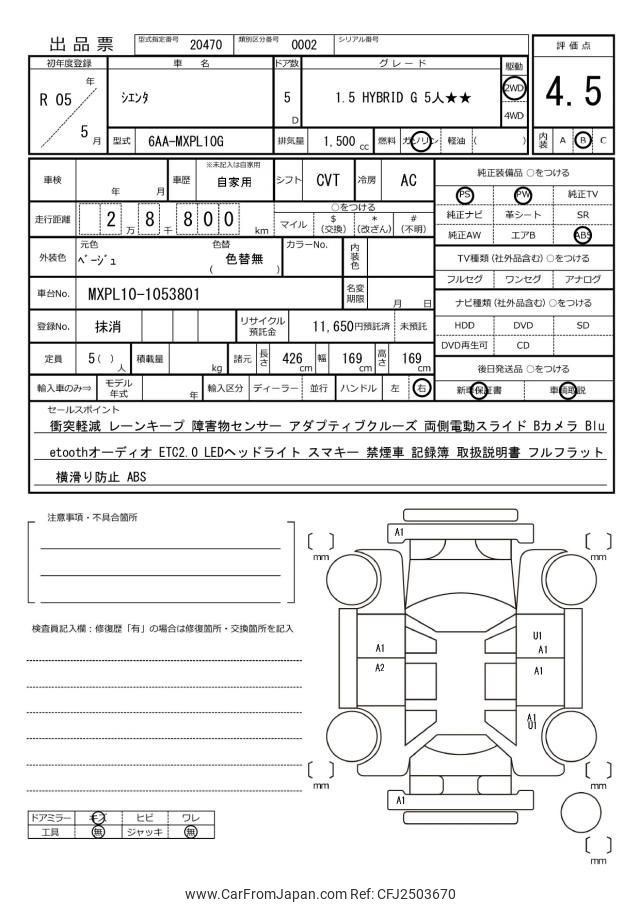 出品票 型式指定番号 20470 類別区分番号 0002 シリアル番号
評価点
4.5
内装 A B C
初年度登録 車名 ドア数 グレード 駆動
R 05 年 / 5 月 シエンタ 5 D 1.5 HYBRID G 5人★★ 2WD 4WD
型式 6AA-MXPL10G 排気量 1,500 cc 燃料 ガソリン 軽油 ( )
車検 年 月 車歴 ※未記入は自家用 自家用 シフト CVT 冷房 AC
走行距離 2 8 8 0 0 万 千 km ○をつける マイル $ (交換) * (改ざん) # (不明)
外装色 元色 ベージュ 色替 ( 色替無 ) カラーNo. 内装色
車台No. MXPL10-1053801 名変期限 月 日
登録No. 抹消 リサイクル預託金 11,650円預託済 未預託
定員 5( )人 積載量 kg 諸元 長さ 426cm 幅 169cm 高さ 169cm
輸入車のみ⇒ モデル年式 年 輸入区分 ディーラー 並行 ハンドル 左 右
純正装備品 ○をつける
PS PW 純正TV
純正ナビ 革シート SR
純正AW エアB ABS
TV種類(社外品含む)○をつける
フルセグ ワンセグ アナログ
ナビ種類(社外品含む)○をつける
HDD DVD SD
DVD再生可 CD
後日発送品 ○をつける
新車保証書 車輌取説
セールスポイント
衝突軽減 レーンキープ 障害物センサー アダプティブクルーズ 両側電動スライド Bカメラ Blu
etoothオーディオ ETC2.0 LEDヘッドライト スマキー 禁煙車 記録簿 取扱説明書 フルフラット
横滑り防止 ABS
注意事項・不具合箇所
検査員記入欄:修復歴「有」の場合は修復箇所・交換箇所を記入
ドアミラー キズ ヒビ ワレ
工具 無 ジャッキ 無
A1
[ ] mm [ ] mm
A1 U1 A1
A2 A1
A1 U1
[ ] mm [ ] mm
A1
[ ] mm
www.CarFromJapan.com Ref: CFJ2503670